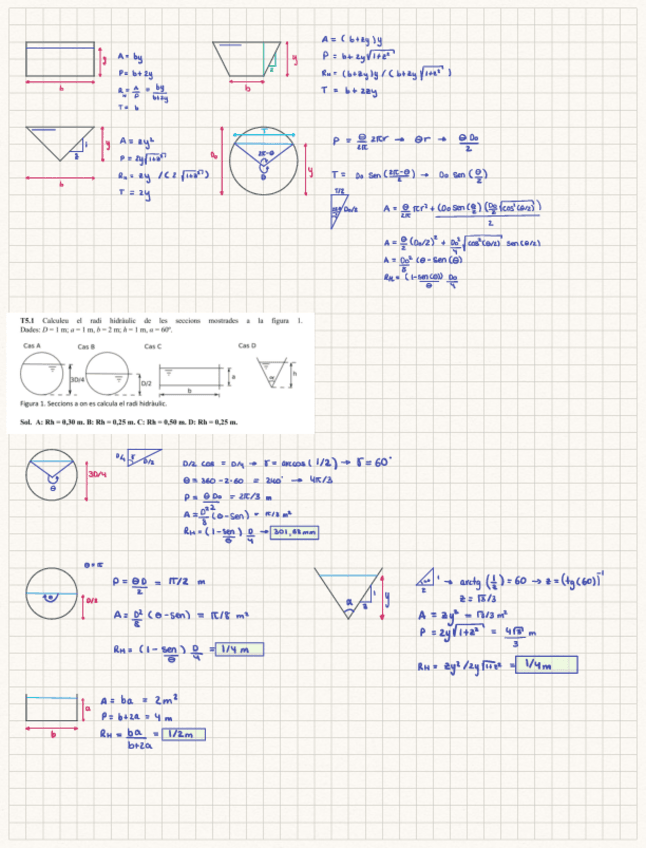 A = by
P = b + 2y
R_H = A/P = by/(b+2y)
T = b
y
b
A = (b + zy) y
P = b + 2y √(1+z²)
R_H = (b+zy)y / (b+2y √(1+z²))
T = b + 2zy
y
z
b
A = zy²
P = 2y √(1+z²)
R_H = zy / (2 √(1+z²))
T = 2y
y
1
z
b
T
D₀
2π-θ
θ
y
P = θ/2π 2πr → θr → θ D₀/2
T = D₀ sen (2π-θ/2) → D₀ sen (θ/2)
T/2
D₀/2
A = θ/2π πr² + (D₀ sen (θ/2) (D₀/2 √cos²(θ/2))) / 2
A = θ/2 (D₀/2)² + D₀²/4 √cos²(θ/2) sen (θ/2)
A = D₀²/8 (θ - sen(θ))
R_H = (1 - sen(θ)/θ) D₀/4
T5.1 Calculeu el radi hidràulic de les seccions mostrades a la figura 1.
Dades: D = 1 m; a = 1 m, b = 2 m; h = 1 m, α = 60º.
Cas A Cas B Cas C Cas D
3D/4 D/2 a h
b
Figura 1. Seccions a on es calcula el radi hidràulic.
Sol. A: Rh = 0,30 m. B: Rh = 0,25 m. C: Rh = 0,50 m. D: Rh = 0,25 m.
3D/4
θ
D/4
D/2
D/2 cos = D/4 → γ = arccos (1/2) → γ = 60°
θ = 360 - 2·60 = 240° → 4π/3
P = θ D₀/2 = 2π/3 m
A = D²/8 (θ - sen) = π/3 m²
R_H = (1 - sen/θ) D/4 → 301,68 mm
θ = π
D/2
θ
P = θD/2 = π/2 m
A = D²/8 (θ - sen) = π/8 m²
R_H = (1 - sen/θ) D/4 = 1/4 m
α
1
z
y
→ arctg (1/z) = 60 → z = (tg(60))⁻¹
z = √3/3
A = zy² = √3/3 m²
P = 2y √(1+z²) = 4√3/3 m
R_H = zy²/2y √(1+z²) = 1/4 m
a
b
A = ba = 2 m²
P = b + 2a = 4 m
R_H = ba/(b+2a) = 1/2 m